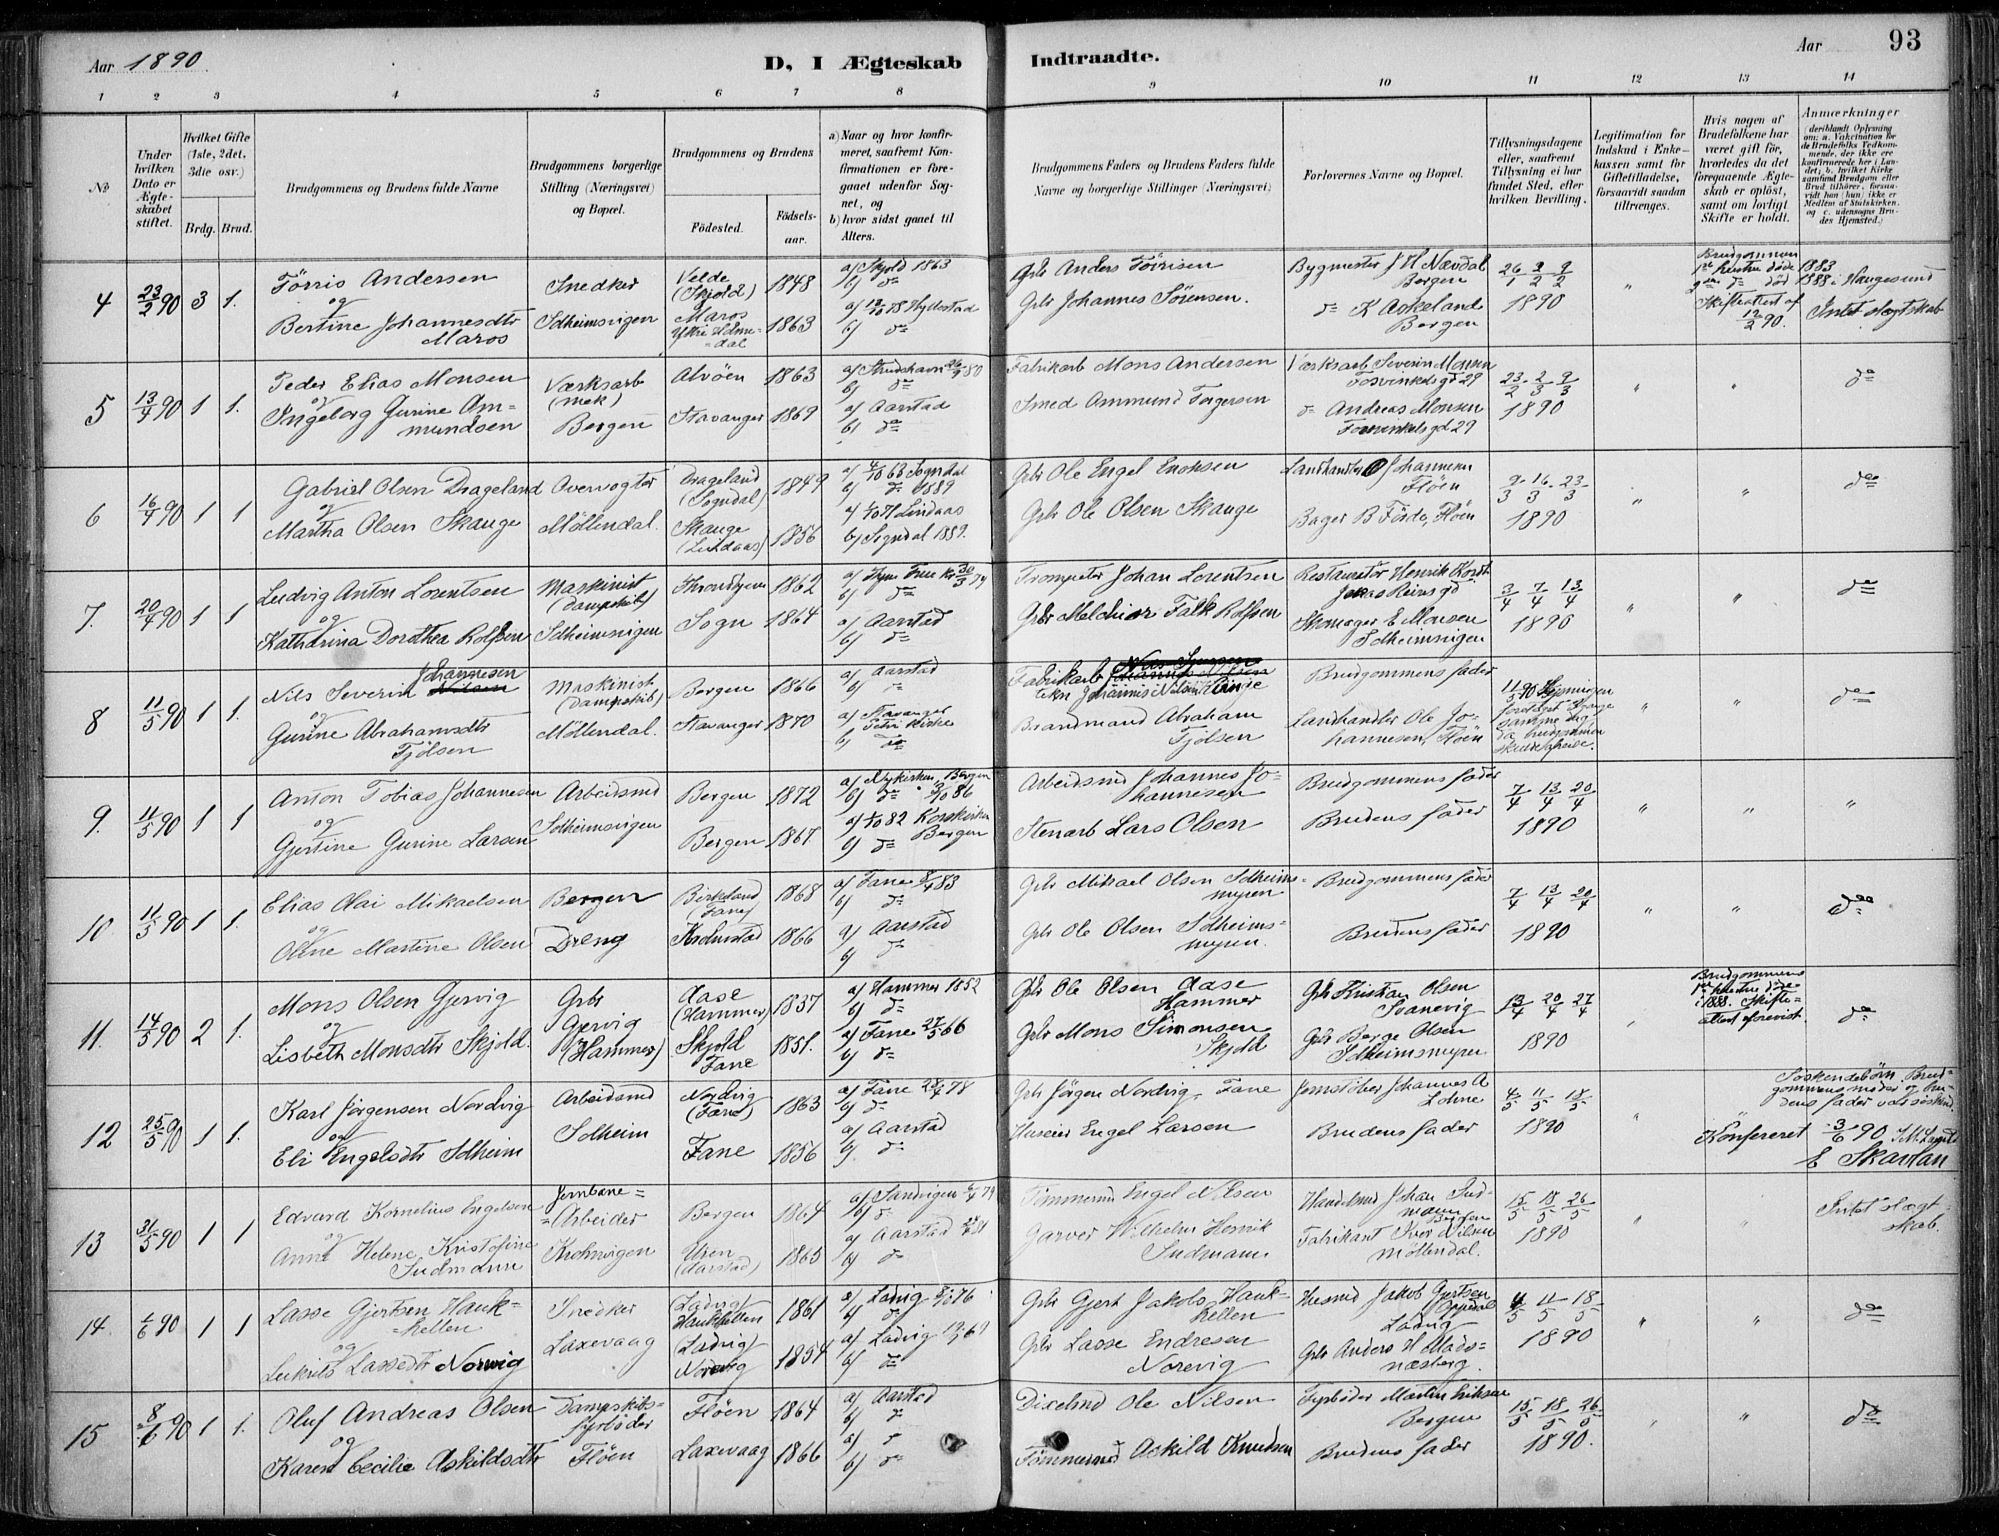 Aar 1890.
D, I Ægteskab Indtraadte.
Aar 93
1 2 3 4 5 6 7 8 9 10 11 12 13 14
No
Under hvilken Dato er Ægteskabet stiftet.
Hvilket Gifte (1ste, 2det, 3die osv.)
Brdg. Brud.
Brudgommens og Brudens fulde Navne
Brudgommens borgerlige Stilling (Næringsvei) og Bopæl.
Brudgommens og Brudens
Fødested. Fødsels-aar.
a) Naar og hvor konfirmeret, saafremt Konfirmationen er foregaaet udenfor Sognet, og
b) hvor sidst gaaet til Alters.
Brudgommens Faders og Brudens Faders fulde Navne og borgerlige Stillinger (Næringsvei)
Forlovernes Navne og Bopæl.
Tillysningsdagene eller, saafremt Tillysning ei har fundet Sted, efter hvilken Bevilling.
Legitimation for Indskud i Enkekassen samt for Giftetilladelse, forsaavidt saadan tiltrænges.
Hvis nogen af Brudefolkene har været gift før, hvorledes da det foregaaende Ægteskab er opløst, samt om lovligt Skifte er holdt.
Anmærkninger
4 23/2 90 3 1. Törris Andersen Snedker Velde (Skjold) 1848 a) Skjold 1863 b) do Gbr Anders Törrisen Bygmester J H Nævdal Bergen 26/1 2/2 9/2 1890 "
og Bertine Johannesdtr Maros Solheimsvigen Maros Ytre Holmedal 1863 b) do Gbr Johannes Sörensen. do K Askeland Bergen
Brudgommens 1ste hustru döde 1883 2den do död 1888 i Haugesund Skifteattest af 12/2 90. Intet slegtskab
5 13/4 90 1 1. Peder Elias Monsen Værksarb (mek) Alvöen 1863 a) Strudshavn b) do Fabrikarb Mons Andersen Værksarb Severin Monsen Fosvinkelsgd 29 23/2 2/3 9/3 1890 " " do
og Ingeborg Gurine Ammundsen Bergen Stavanger 1869 a) Aarstad b) do Smed Ommund Torgersen do Andreas Monsen Fosvinkelsgd 29
6 16/4 90 1 1 Gabriel Olsen Drageland Overvogter Drageland (Sogndal) 1849 a) 4/10 63 Sogndal b) do 1889 Gbr Ole Engel Enoksen Landhandler O Johannesen Flöen 9/3 16/3 23/3 1890 " " do
og Martha Olsen Skauge Möllendal. Skauge (Lindaas) 1856 Lindaas b) Sogndal 1889. Gbr Ole Olsen Skauge Bager B Förde, Flöen
7. 20/4 90 1 1 Ludvig Anton Lorentsen Maskinist (Dampskib) Throndhjem 1862 b) do Trompeter Johan Lorentsen Restauratör Henrik 3/4 7/4 13/4 1890 " " do
og Katharina Dorothea Rolfsen Solheimsvigen Sogn 1864 a) Aarstad b) Gbr Melchior Falk Rolfsen Skomager E Monsen Solheimsvigen
8 11/5 90 1 1. Nils Severin Johannesen Maskinist (Dampskib) Bergen 1866 a) Aarstad b) do Fabrikarb Brudgommens fader " " do
og Gurine Abrahamsdtr Fjölsen Möllendal. Stavanger 1870 a) Stavanger Petri Kirke b) do Brandmand Abraham Fjölsen Landhandler Ole Johannesen, Flöen
9. 11/5 90 1 1 Anton Tobias Johannesen Arbeidsmd Bergen 1872 a) Nykirken, Bergen b) do Arbeidsmd Johannes Johannesen Brudgommens fader 7/4 13/4 20/4 1890 " " "
og Gjertine Gurine Larsen Solheimsvigen Bergen 1867 a) 1/10 82 Korskirken Bergen b) do Stenarb Lars Olsen Brudens fader
10. 11/5 90 1 1. Elias Olai Mikaelsen Bergen Birkeland (Fane) 1868 a) Fane 8/4 83 b) do Gbr Mikael Olsen Solheimsmyren Brudgommens fader 7/4 13/4 20/4 1890 " " do
og Oline Martine Olsen Dreng Kronstad 1866 a) Aarstad b) do Gbr Ole Olsen Solheimsmyren. Brudens fader
11. 14/5 90 2 1. Mons Olsen Gjervig Gbr Gjervig (Hammer) Aase (Hammer) 1837 a) Hammer 1852 b) do Gbr Ole Olsen Aase Hammer Gbr Kristian Olsen Svanevig 13/4 20/4 27/4 1890
og Lisbeth Monsdtr Skjold. Skjold Fane 1851. a) Fane 27/5 66 b) do Gbr Mons Simonsen Skjold Gbr Berge Olsen Solheimsmyren
Brudgommens 1ste hustru döde i 1888. Skifteattest forevist. do
12 25/5 90 1 1. Karl Jörgensen Nordvig Arbeidsmd Nordvig (Fane) 1863 a) Fane 28/4 78 b) do Gbr Jörgen Nordvig, Fane Jernstöber Johannes A Lohne 4/5 11/5 18/5 1890 "
og Eli Engelsdtr Solheim Solheim Fane 1856 a) Aarstad b) do Huseier Engel Larsen Brudens fader
Söskendebörn. Brudgommens moder og brudens fader var söskend. Konfereret 3/6 90 E Skavlan
13 31/5 90 1 1 Edvard Kornelius Engelsen Jernbane-Arbeider Bergen 1864 a) Sandvigen b) do Tömmermd Engel Nilsen Handelsmd Johan Sudmann Bergen 15/5 18/5 26/5 1890 " " Intet slegtskab.
og Anne Helene Kristofine Sudmann Krohnvigen Ulven (Aarstad) 1865 a) Aarstad b) do Garver Wilhelm Henrik Sudmann Fabrikant Iver Nilsen Möllendal.
14. 1/6 90 1 1 Lasse Gjertsen Haukhellen Snedker (Ladvig) Haukhellen 1861 a) Ladvig b) do Gbr Gjert Jakobs Haukhellen Husmd Jakob Gjertsen Oppedal Ladvig 4/5 11/5 18/5 1890 " " do
og Lukrits Lassedtr Norevig Laxevaag (Ladvig) Norevig 1854 a) Ladvig b) do Gbr Lasse Endresen Norevig Gbr Anders H Mads-næsberg.
15 8/6 90 1 1. Oluf Andreas Olsen Dampskibs-fyrböder Flöen 1864 a) Aarstad b) do Dixelmd Ole Nilsen Fyrböder Martin Eriksen Bergen 15/5 18/5 26/5 1890. " " do
og Karen Cecilie Askildsdtr Flöen Laxevaag 1866 a) do b) do Tömmermd Askild Knudsen Brudens fader